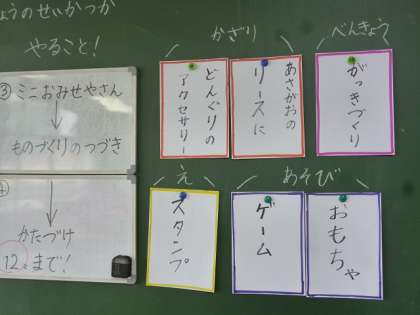 ょうのせいかつか
やること!
③ミニおみせやさん
↓
ものづくりのつづき
↓
かたづけ
12 まで!
かざり
どんぐりの
アクセサリー
あさがおの
リースに
べんきょう
がっきづくり
え
スタンプ
あそび
ゲーム
おもちゃ